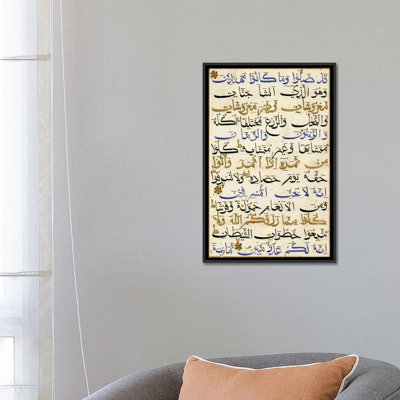 قد ضلوا وما كانوا مهتدين
وهو الذي انشا جنات
معروشات وغير معروشات
والنخل والزرع مختلفا اكله
والزيتون والرمان
متشابها وغير متشابه كلوا
من ثمره اذا اثمر واتوا
حقه يوم حصاده ولا تسرفوا
انه لا يحب المسرفين
ومن الانعام حمولة وفرشا
كلوا مما رزقكم الله ولا
تتبعوا خطوات الشيطان
انه لكم عدو مبين ثمانية